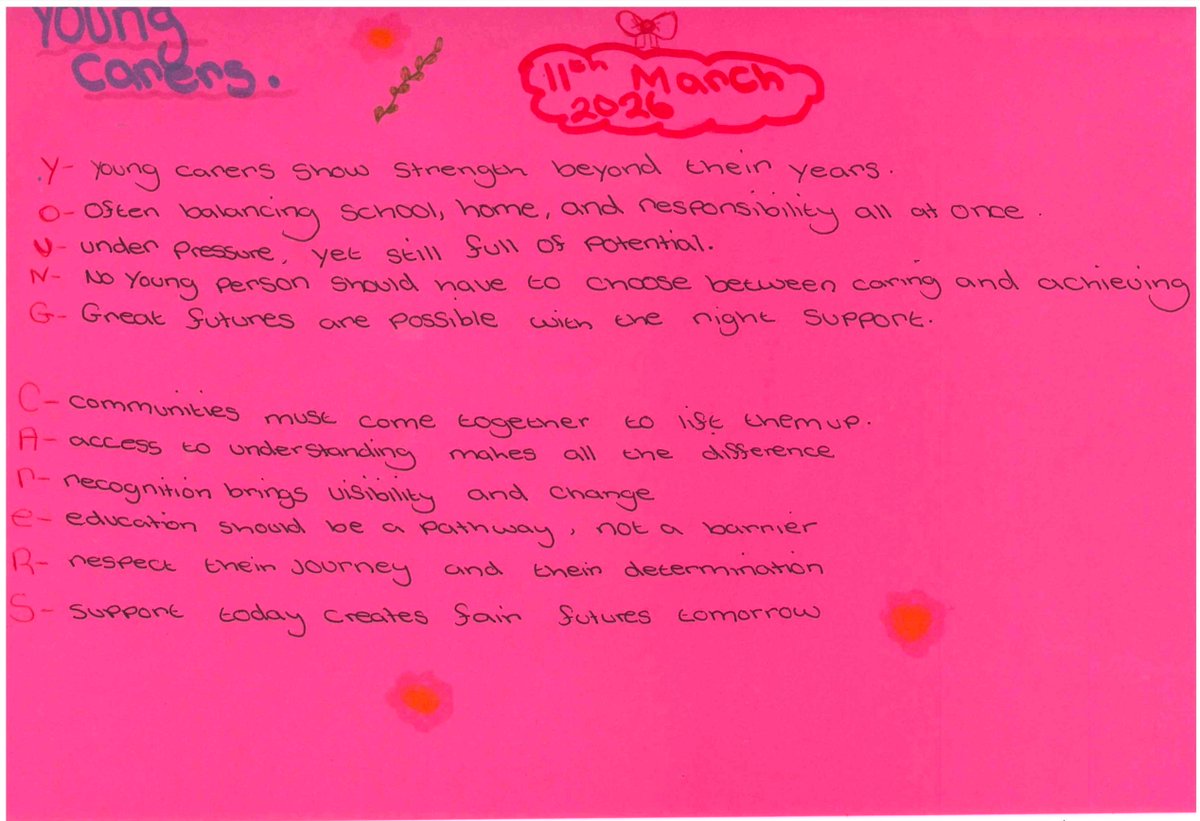 Young
Carers.
11th March
2026
Y- Young carers show strength beyond their years.
O- Often balancing school, home, and responsibility all at once.
U- under pressure, yet still full of potential.
N- No young person should have to choose between caring and achieving
G- Great futures are possible with the right support.
C- communities must come together to lift them up.
A- access to understanding makes all the difference
r- recognition brings visibility and change
e- education should be a pathway, not a barrier
R- respect their journey and their determination
S- support today creates fair futures tomorrow